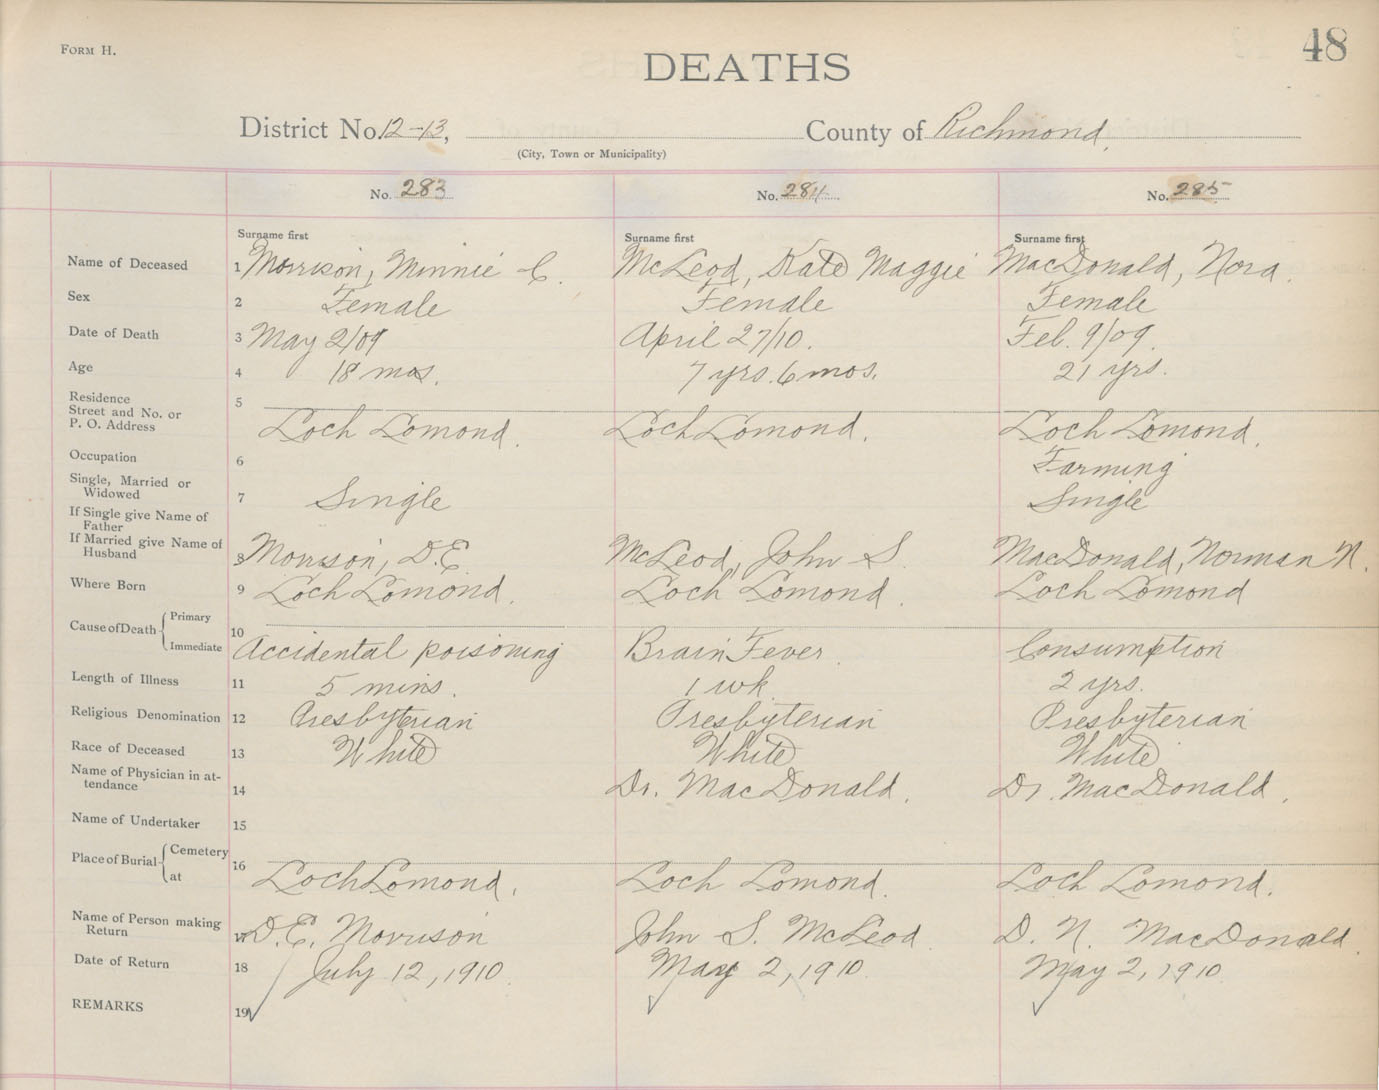 FORM H.
48
DEATHS
District No. 12-13, County of Richmond.
(City, Town or Municipality)
No. 283 No. 284 No. 285
Surname first Surname first Surname first
Name of Deceased 1 Morrison, Minnie C. McLeod, Kate Maggie MacDonald, Nora.
Sex 2 Female Female Female
Date of Death 3 May 2/09 April 27/10. Feb. 9/09.
Age 4 18 mos. 7 yrs. 6 mos. 21 yrs.
Residence 5
Street and No. or
P. O. Address Loch Lomond. Loch Lomond. Loch Lomond.
Occupation 6 Farming
Single, Married or
Widowed 7 Single Single
If Single give Name of
Father
If Married give Name of
Husband 8 Morrison, D.E. McLeod, John S. MacDonald, Norman N.
Where Born 9 Loch Lomond. Loch Lomond. Loch Lomond
Cause of Death { Primary 10
Immediate Accidental poisoning Brain Fever. Consumption
Length of Illness 11 5 mins. 1 wk. 2 yrs.
Religious Denomination 12 Presbyterian Presbyterian Presbyterian
Race of Deceased 13 White White White
Name of Physician in at-
tendance 14 Dr. MacDonald. Dr. MacDonald.
Name of Undertaker 15
Place of Burial { Cemetery 16
at Loch Lomond. Loch Lomond. Loch Lomond.
Name of Person making
Return 17 D.E. Morrison John S. McLeod. D. N. MacDonald.
Date of Return 18 July 12, 1910. May 2, 1910. May 2, 1910
REMARKS 19